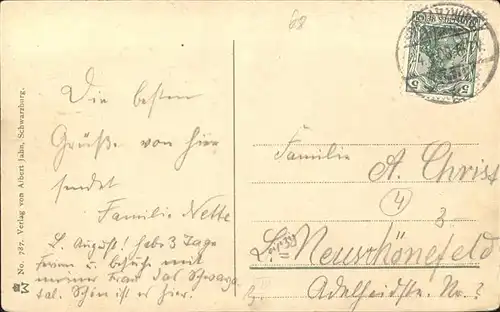 68
Die besten
Grüße von hier
sendet
Familie Nette
L. August! habe 3 Tage
Ferien u. besuche mit
meiner Frau das Schwarza-
tal. Schön ist es hier.
Familie
A. Christ
4
L.= Neuschönefeld
Adelheidstr. No. 
No. 787. Verlag von Albert Jahn, Schwarzburg.
5 5